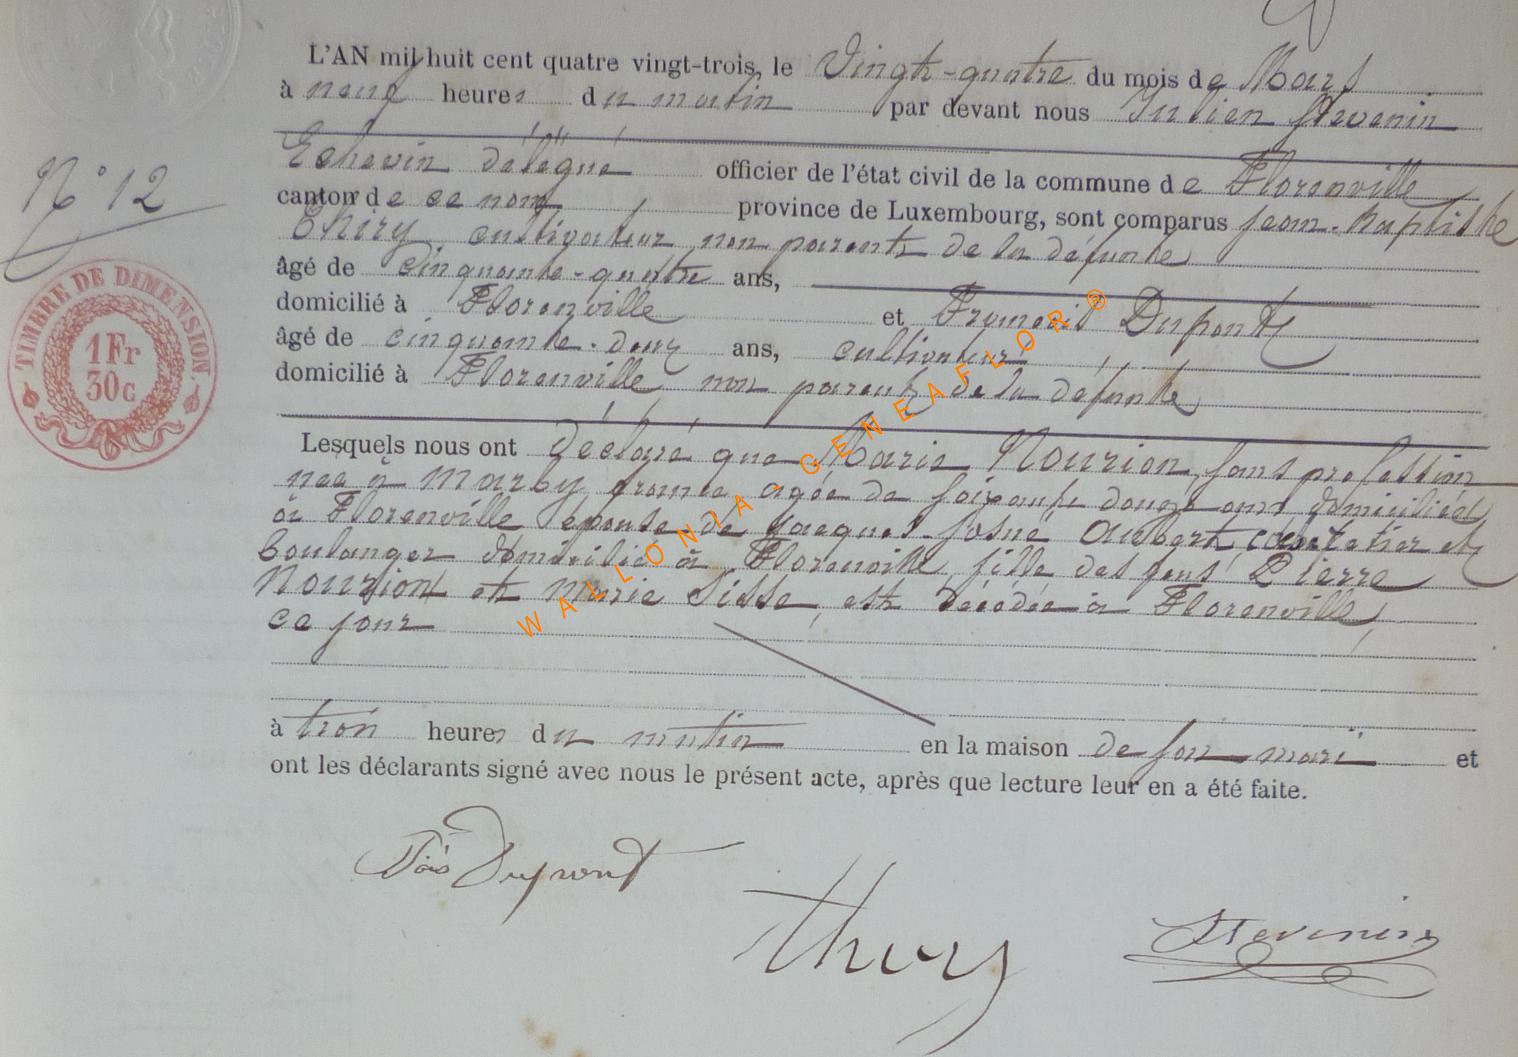 L'AN mil huit cent quatre vingt-trois, le Vingt-quatre du mois de Mars
à neuf heures du matin par devant nous Julien Stevenin
Echevin délégué officier de l'état civil de la commune de Florenville
canton de ce nom, province de Luxembourg, sont comparus Jean-Baptiste
N° 12
Thiry cultivateur non parent de la défunte
âgé de cinquante-quatre ans,
domicilié à Florenville et François Dupont
âgé de cinquante-deux ans, cultivateur,
domicilié à Florenville non parent de la défunte
TIMBRE DE DIMENSION.
1 Fr
30 c
Lesquels nous ont déclaré que Marie Nourion, sans profession
née à Marby, france, agée de soixante douze ans domiciliée
à Florenville épouse de Jacques-Josué Aubert, cabaretier et
boulanger domicilié à Florenville, fille des feus Pierre
Nourion et Marie Sisse, est décédée à Florenville,
ce jour
à trois heures du matin en la maison de son mari et
ont les déclarants signé avec nous le présent acte, après que lecture leur en a été faite.
Fçois Dupont
Thiry
Stevenin
WALLONIA-GENEAFLOR®